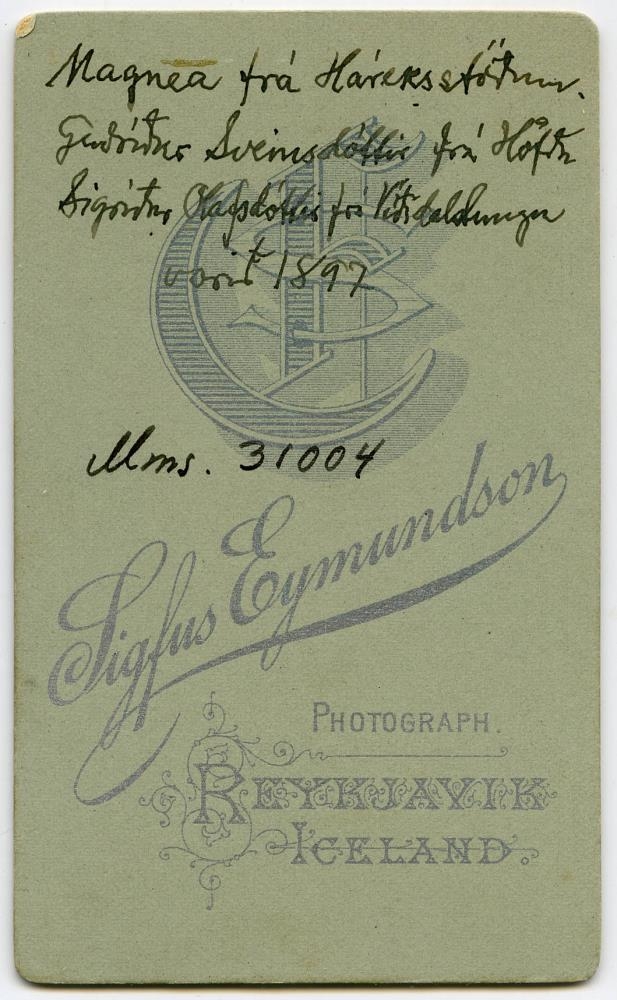 Magnea frá Háreksstöðum.
Guðríður Sveinsdóttir frá Höfða
Sigríður Olafsdóttir frá
vorið 1897
Mms. 31004
Sigfus Eymundson
PHOTOGRAPH.
REYKJAVIK
ICELAND.